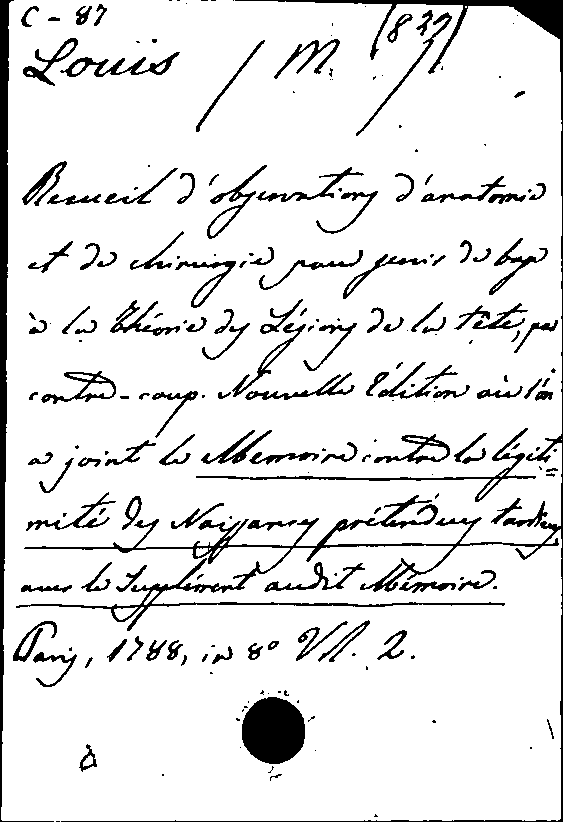 C - 87
(827)
Louis / M. /
Recueil d'observations d'anatomie
et de chirurgie pour servir de base
à la théorie des Lésions de la tête, par
contre-coup. Nouvelle Edition où l'on
a joint le Memoire contre la légiti-
mité des Naissances prétendues tardives,
avec le Supplément audit Mémoire.
Paris, 1788, in 8° Vol. 2.